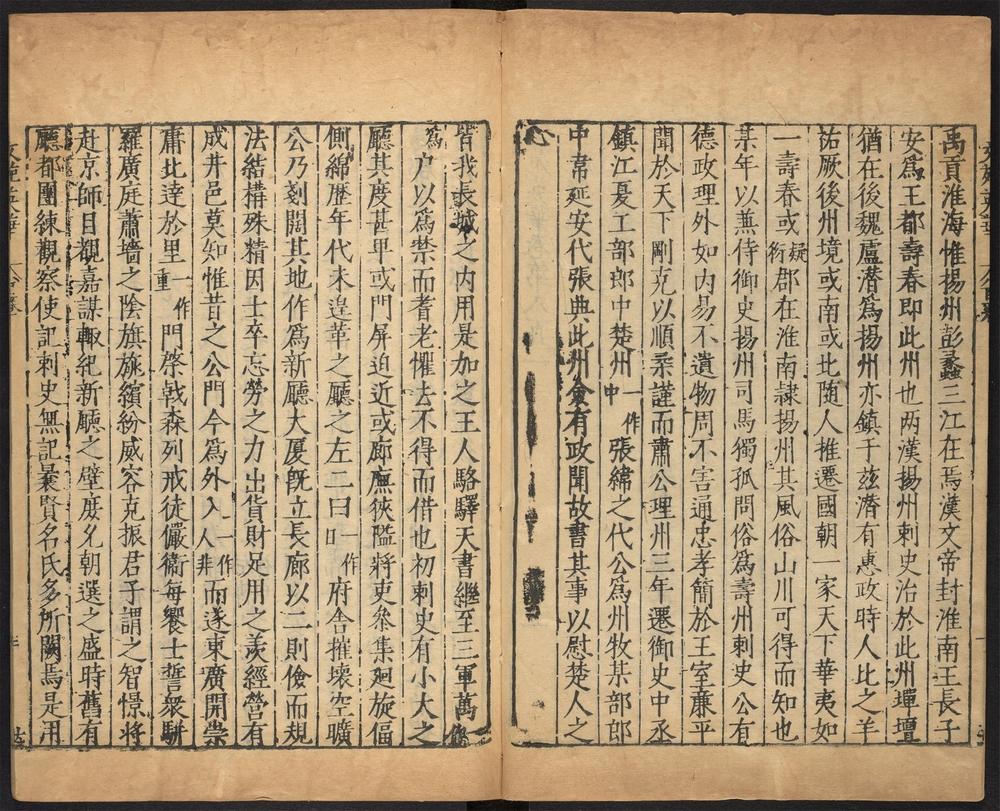 禹貢淮海惟揚州彭蠡三江在焉漢文帝封淮南王長子
安爲王都壽春即此州也两漢揚州刺史治於此州墠壇
猶在後魏盧潜爲揚州亦鎮于兹潜有惠政時人比之羊
祐厥後州境或南或北随人推遷國朝一家天下華夷如
一壽春或疑衍郡在淮南隷揚州其風俗山川可得而知也
某年以兼侍御史揚州司馬獨孤問俗爲壽州刺史公有
德政理外如内易不遺物周不害通忠孝簡於王室亷平
聞於天下剛克以順柔謹而肅公理州三年遷御史中丞
鎮江夏工部郎中楚州一作中張緯之代公爲州牧某部郎
中韋延安代張典此州僉有政聞故書其事以慰楚人之
心
皆我長城之内用是加之王人駱驛天書繼至三軍萬
爲户以爲禁而耆老懼去不得而借也初刺史有小大之
廳其度甚甲或門屏迫近或廊廡狹隘將吏叅集廻旋偪
側綿歷年代未遑革之廳之左二曰一作旧府舎摧壞空曠
公乃剗闢其地作爲新廳大厦旣立長廊以二則儉而規
法結構殊精因士卒忘勞之力出貨財足用之羡經營有
成井邑莫知惟昔之公門今爲外入一作人非而遂東廣開崇
庸北達於里一作重門棨戟森列戒徒儼衛每饗士誓衆駢
羅廣庭蕭墻之陰旗旐繽紛威容克振君子謂之智憬將
赴京師目觀嘉謀輙紀新廳之壁度九朝選之盛時舊有
廳都團練觀察使記刺史無記曩賢名氏多所闕焉是用